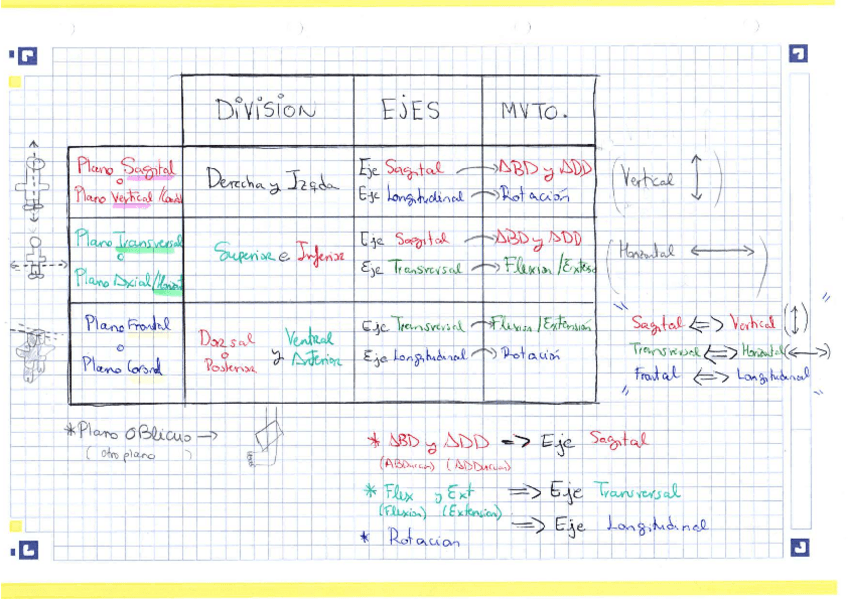 DIVISIÓN EJES MVTO.
Plano Sagital
o
Plano Vertical /
Derecha y Izqda
Eje Sagital → ABD y ADD
Eje Longitudinal → Rotación
(Vertical ↕)
Plano Transversal
o
Plano Axial/Horizont
Superior e Inferior
Eje Sagital → ABD y ADD
Eje Transversal → Flexion /Extens
(Horizontal ↔)
Plano Frontal
o
Plano Coronal
Dorsal
o
Posterior
y
Ventral
o
Anterior
Eje Transversal → Flexion/Extensión
Eje Longitudinal → Rotación
"
Sagital ⇔ Vertical (↕)
Transversal ⇔ Horizontal (↔)
Frontal ⇔ Longitudinal
"
*Plano OBlicuo →
( otro plano )
* ABD y ADD => Eje Sagital
(ABDuccion) (ADDuccion)
* Flex y Ext => Eje Transversal
(Flexion) (Extension)
* Rotacion => Eje Longitudinal